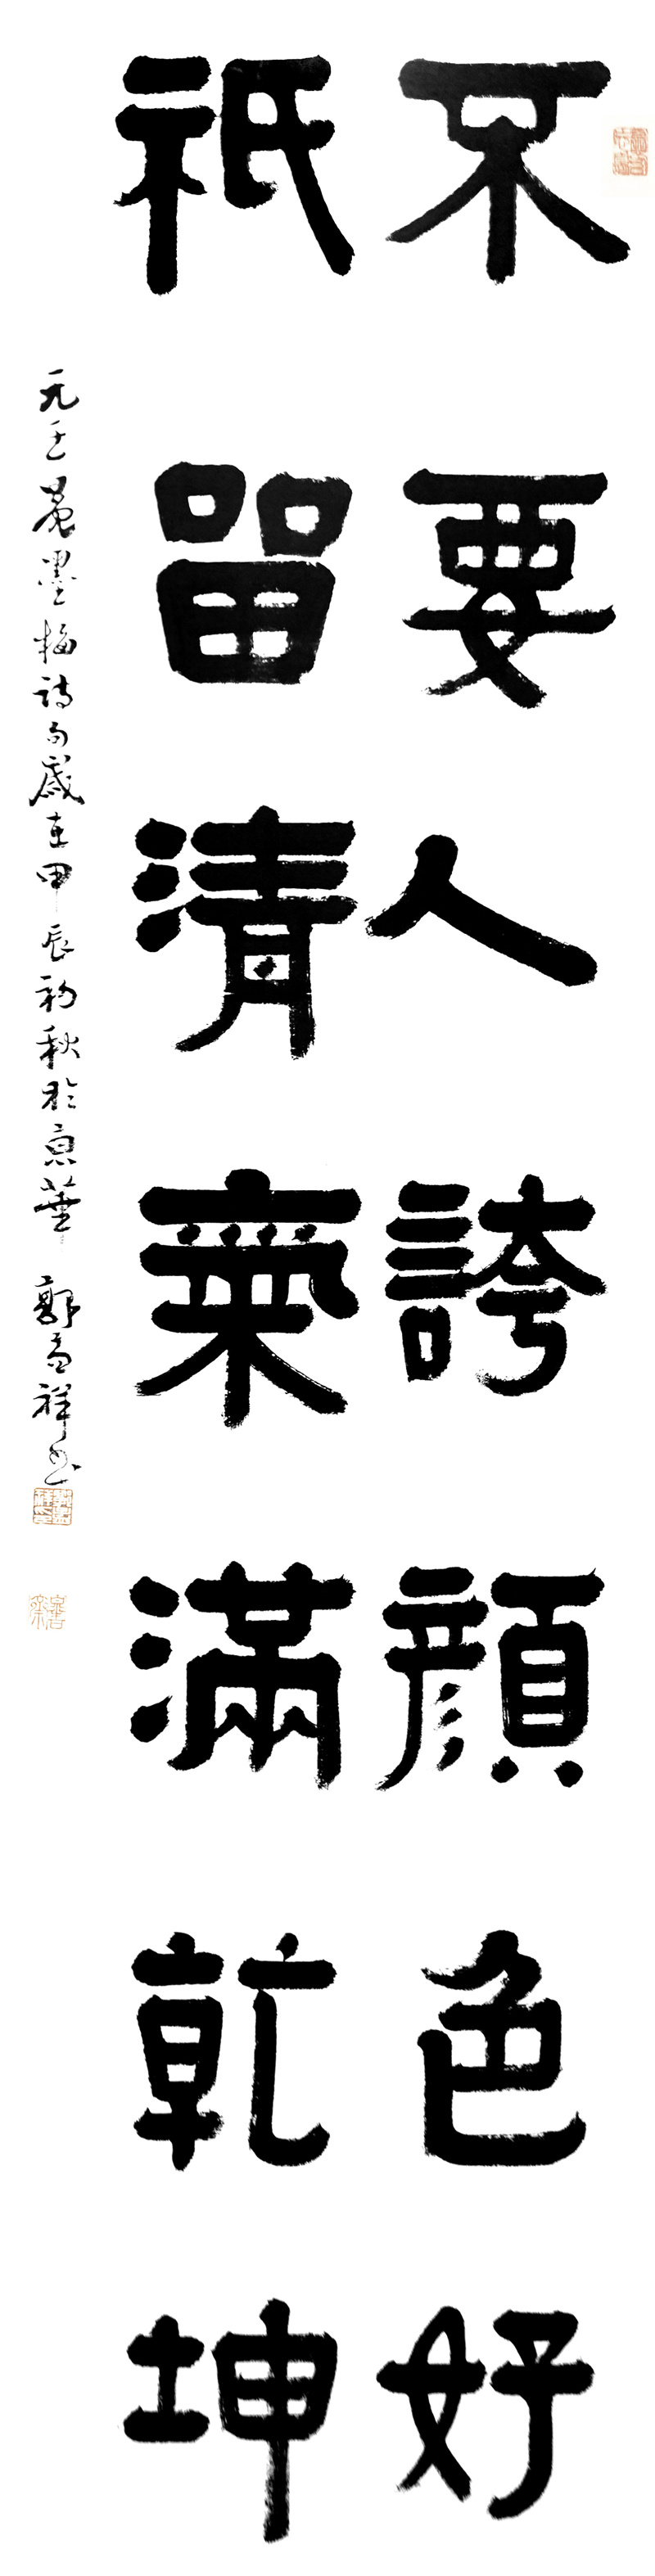 不要人誇顏色好
祇留清氣滿乾坤
元王冕墨梅詩句歲在甲辰初秋於京華 郭高祥書